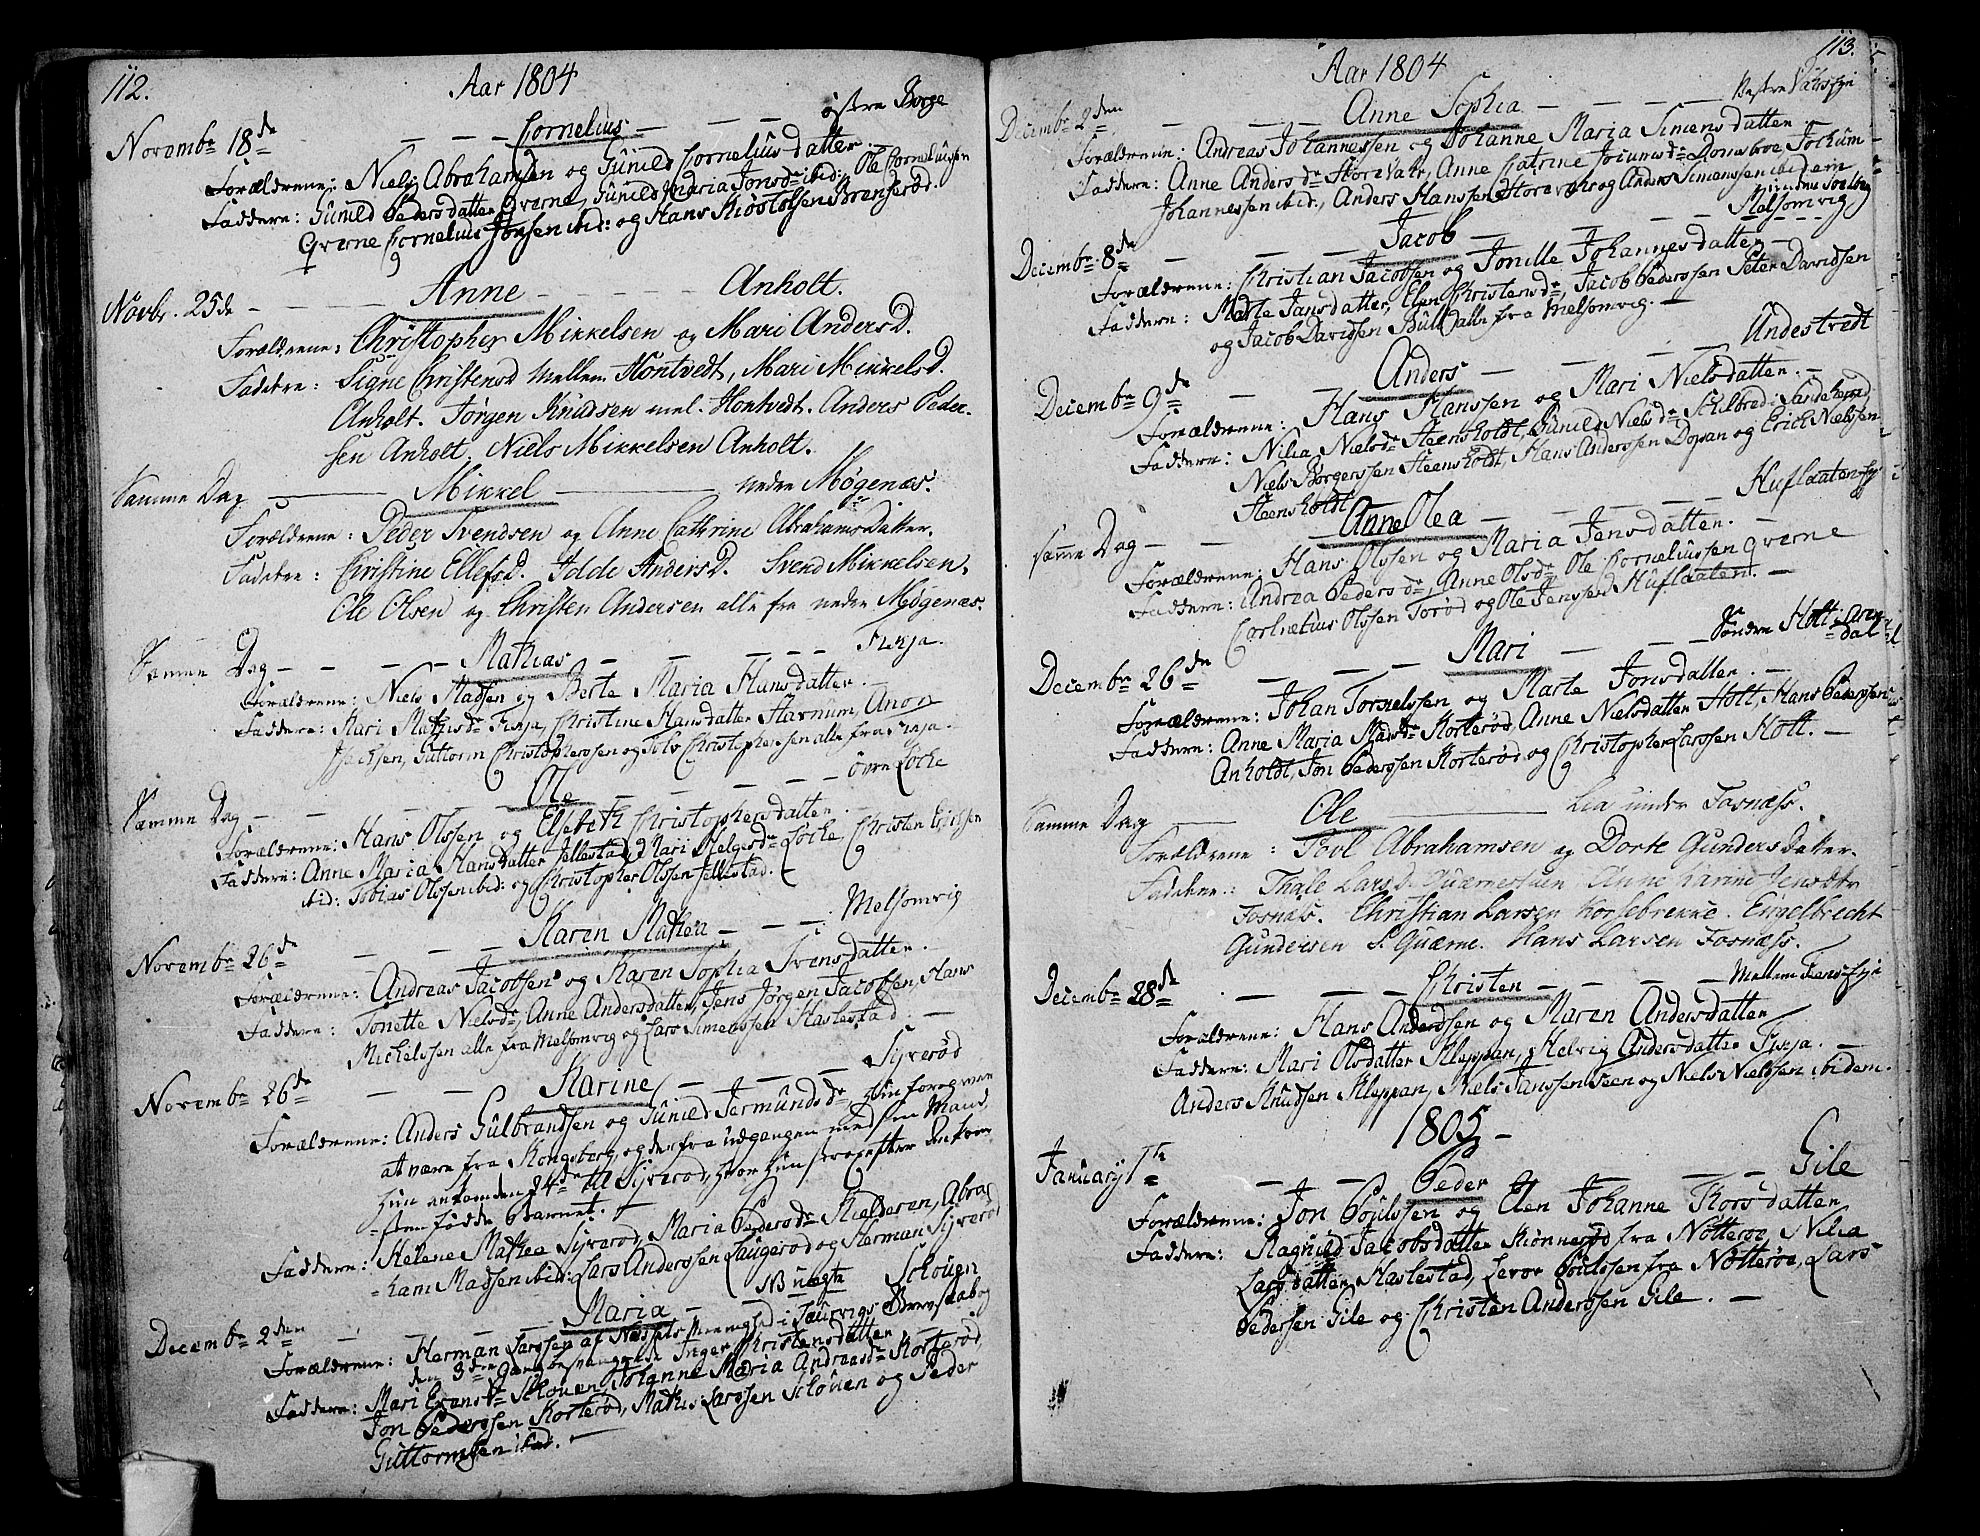 112.
Aar 1804
Novembr 18de — — — Cornelius — — — østre Borge
Forældrene: Niels Abrahamsen og Gunild Cornelius datter.
Faddere: Gunild Peders datter Qverne, Gunild Maria Jonsdr ibid: Ole Corneliussen
Qverne Cornelius Jonsen ibid: og Hans Kiøstolsen Brænserød.
Novbr. 25de — — — — Anne — — — — Anholt.
Forældrene: Christopher Mikkelsen og Mari Anders D.
Faddere: Signe Christens D mellem Hontvedt, Mari Mikkels D.
Anholt. Jørgen Knudsen mel. Hontvedt. Anders Peder-
sen Anholt. Niels Mikkelsen Anholt.
Samme Dag —— Mikkel —— nedre Møgenæs.
Forældrene: Peder Svendsen og Anne Cathrine Abrahams Datter.
Faddere: Christine Ellefs D. Idde Anders D. Svend Mikkelsen.
Ole Olsen og Christen Andersen alle fra nedre Møgenæs.
Samme Dag — — — — Mathias — — — — — Fevja.
Forældrene: Niels Madsen og Berte Maria Hansdatter. —
Faddere: Kari Mathisdr Fevja, Christine Hansdatter Havnum, Anon
Isachsen, Guttorm Christophersen og Tolv Christophersen alle fra Fevja.
Samme Dag — — — — Ole — — — — — øvre Løcke
Forældrene: Hans Olssen og Elsebeth Christophersdatter. —
Faddere: Anne Maria Hansdatter Jellestad, Mari Helgesdr Løcke, Christen Erichsen
ibid: Tobias Olssen ibid: og Christopher Olssen Jellestad.
Novembr 26de — — — Karen Mathea — — — Melsomvig
Forældrene: Andreas Jacobsen og Karen Sophia Svensdatter. —
Faddere: Tonette Nielsdr, Anne Andersdatter, Jens Jørgen Jacobsen, Hans
Michelssen alle fra Melsomvig og Lars Simenssen Haslestad. —
Novembr 26de — — — Karine — — — Syverød
Forældrene: Anders Gulbrandsen og Gunild Jermundsdr hun foregiver
at være fra Kongsberg, og derfra udgangen med sin Mand,
hun ankom den 24de til Syverød, hvor hun strax efter Ankom-
sten fødde Barnet. —
Faddere: Helene Mathea Syverød, Maria Pedersdr Kielderen, Abra-
ham Madsen ibid: Lars Anderssen Laugerød og Herman Syverød
Decembr 2den — — — Maria — — NB uægte Schouen
Forældrene: Herman Larssen af Næssets Menighed i Laurvigs Grevskab og
den 3die Gang besvangrede Inger Christensdatter —
Faddere: Mari Evensdr Schouen, Johanne Maria Andreasdr Korterød,
Jon Pederssen Korterød, Mathis Larssen Schouen og Peder
Guttormssen ibid. —
113.
Aar 1804
Decembr 2den — — — Anne Sophia — — — Vestre
Forældrene: Andreas Johannessen og Johanne Maria Simensdatter
Faddere: Anne Andersdr Storevahr, Anne Catrine Jocumsdr Jochum
Johannessen ibid., Anders Hanssen Storevahr og Anders Simenssen ibidem
Decembr 8de — — — Jacob — — — Melsomvig
Forældrene: Christian Jacobsen og Jonille Johannesdatter —
Faddere: Marte Jansdatter, Elen Christensdr, Jacob Pederssen Peter Davidsen
og Jacob Davidsen Bull alle fra Melsomvig. —
Decembr 9de — — Anders — — — Undestvedt
Forældrene: Hans Hanssen og Mari Nielsdatter. —
Faddere: Nilia Nielsdr Steensholdt, Gunild Nielsdr Schilbred i Sandeherred
Niels Borgerssen Steensholdt, Hans Anderssen Dopan og Erich Nielssen
Steensholdt
samme Dag — — — Anne Olea — — — Huflaaten
Forældrene: Hans Olssen og Maria Jensdatter. —
Faddere: Andrea Pedersdr, Anne Olsdr Ole Corneliussen Qverne
Cornelius Olssen Torød og Ole Jenssen Huflaaten. —
Decembr 26de — — — Mari — — — Søndre Holt
Forældrene: Johan Tornelssen og Marte Jonsdatter. —
Faddere: Anne Maria Madsdr Korterød, Anne Nielsdatter Holt, Hans Pederssen
Anholdt, Jon Pederssen Korterød og Christopher Larssen Holt. —
Samme Dag —— Ole —— Lia under Fosnæss.
Forældrene: Povl Abrahamsen og Dorte Gunders Datter.
Faddere: Thale Lars D. Anne Karine Jensdtr
Fosnæs. Christian Larsen Korsebrekke. Engelbrecht
Gundersen S. Quærne. Hans Larsen Fosnæss.
Decembr 28de — — — Christen — — — Mellem
Forældrene: Hans Anderssen og Maren Andersdatter
Faddere: Mari Olsdatter Kleppan, Helvig Andersdatter Fevja. —
Anders Knudsen Kleppan, Niels Janssen Feen og Niels Nielssen ibidem.
1805 —
January 1te — — — Peder — — Gile
Forældrene: Jon Poulssen og Elen Johanne Thorsdatter
Faddere: Ragnild Jacobsdatter Kiønnerød fra Nøtterøe, Nilia
Larsdatter Haslestad, Levor Poulssen fra Nøtterøe, Lars
Pederssen Gile og Christen Anderssen Gile. —